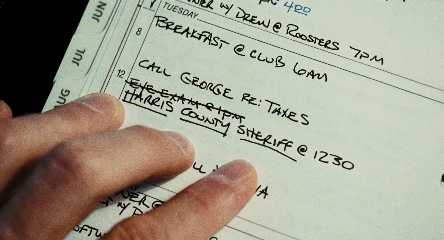 4:00
DINNER W/ DREW @ ROOSTERS 7PM
TUESDAY
8
BREAKFAST @ CLUB 6AM
CALL GEORGE RE: TAXES
12
EYE EXAM @ 1PM
HARRIS COUNTY SHERIFF @ 1230
JUN
JUL